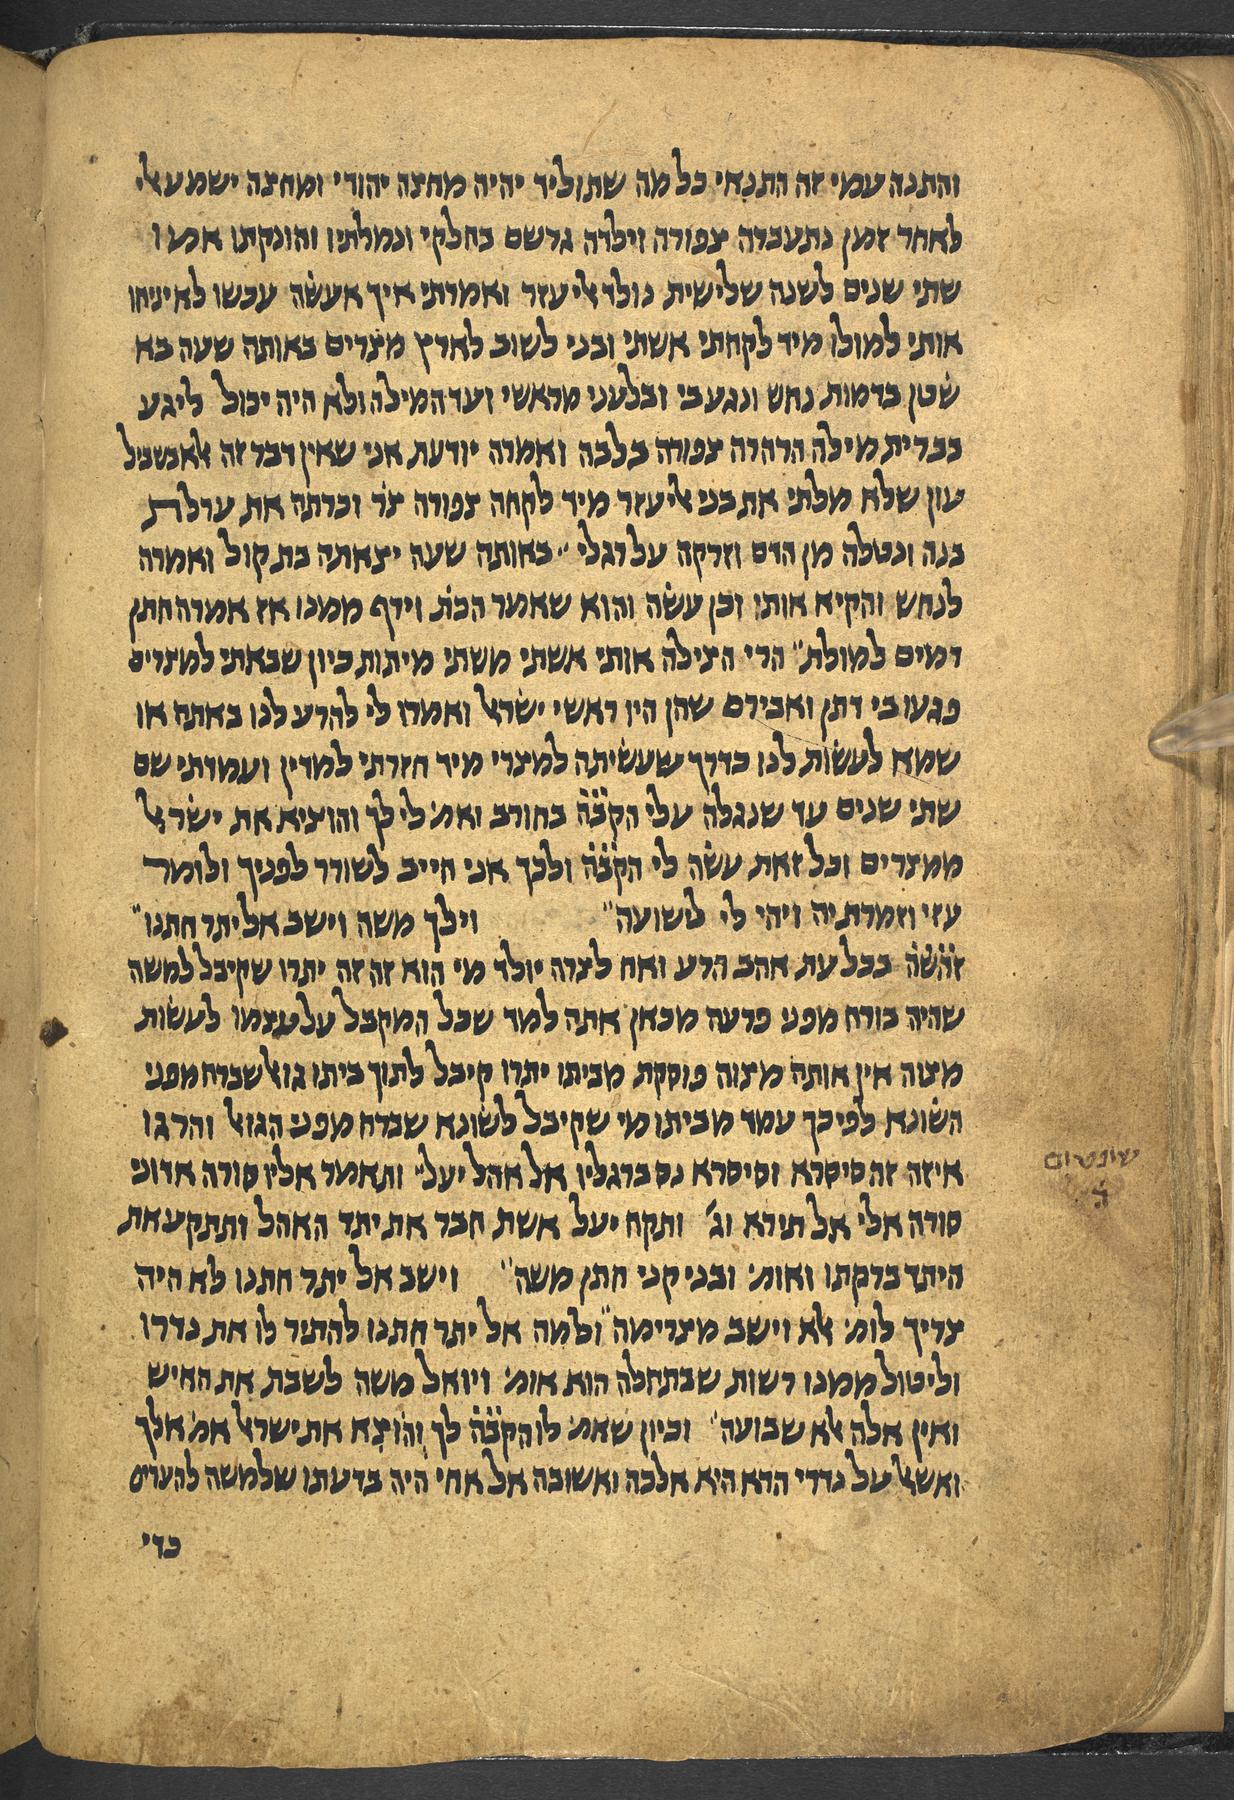 והתנה עמי זה התנאי כל מה שתוליד יהיה מחצה יהודי ומחצה ישמעאלי
לאחר זמן נתעברה צפורה וילדה גרשם בחלקי ונמלתיו והונקתו אמו
שתי שנים לשנה שלישית נולד אליעזר ואמרתי איך אעשה עכשו לא יניחו
אותי למולו מיד לקחתי אשתי ובני לשוב לארץ מצרים באותה שעה בא
שטן בדמות נחש ונגע בי ובלעני מראשי ועד המילה ולא היה יכול ליגע
בברית מילה הרהרה צפורה בלבה ואמרה יודעת אני שאין דבר זה אלא בשביל
עון שלא מלתי את בני אליעזר מיד לקחה צפורה צר וכרתה את ערלת
בנה ונטלה מן הדם וזרקה על רגלי״ באותה שעה יצאתה בת קול ואמרה
לנחש והקיא אותו וכן עשה והוא שאמר הכת׳ וירף ממנו אז אמרה חתן
דמים למולת״ הרי הצילה אותי אשתי משתי מיתות כיון שבאתי למצרים
פגעו בי דתן ואבירם שהן היו ראשי ישראל ואמרו לי להרע לנו באתה או
שמא לעשות לנו כדרך שעשיתה למצרי מיד חזרתי למדין ועמדתי שם
שתי שנים עד שנגלה עלי הקב̇ה̇ בחורב ואמ׳ לי לך והוציא את ישראל
ממצרים וכל זאת עשה לי הקב̇ה̇ ולכך אני חייב לשורר לפניך ולומר
עזי וזמרת יה ויהי לי לישועה״ וילך משה וישב אל יתר חתנו״
ז̇ה̇ש̇ה̇ בכל עת אהב הרע ואח לצרה יולד מי הוא זה זה יתרו שקיבל למשה
שהיה בורח מפני פרעה מכאן אתה למד שכל המקבל על עצמו לעשות
מצוה אין אותה מצוה פוסקת מביתו יתרו קיבל לתוך ביתו גואל שברח מפני
השונא לפיכך עמד מביתו מי שקיבל לשונא שברח מפני הגואל והרגו
איזה זה סיסרא וסיסרא נס ברגליו אל אהל יעל״ ותאמר אליו סורה אדוני
סורה אלי אל תירא וג׳ ותקח יעל אשת חבר את יתד האהל ותתקע את
היתד ברקתו ואומ׳ ובני קני חתן משה״ וישב אל יתר חתנו לא היה
צריך לומ׳ אלא וישב מצרימה״ ולמה אל יתר חתנו להתיר לו את נדרו
וליטול ממנו רשות שבתחלה הוא אומ׳ ויואל משה לשבת את האיש
ואין אלה אלא שבועה״ וכיון שאמ׳ לו הקב̇ה̇ לך והוציא את ישראל אמ׳ אלך
ואשאל על נדרי הדא היא אלכה ואשובה אל אחי היה בדעתו של משה להערים
כדי
שופטים
ד̇